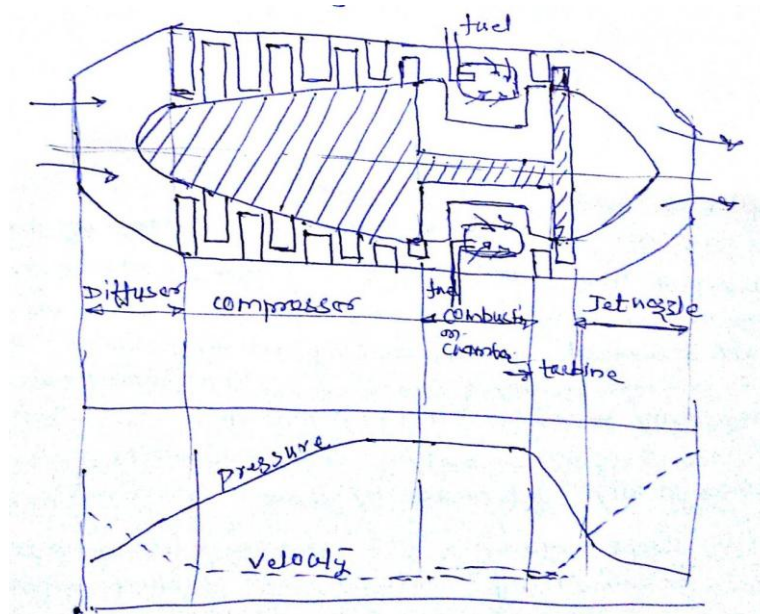 fuel
Diffuser
compressor
fuel
combusti
on
chamber
Jet nozzle
turbine
pressure
velocity